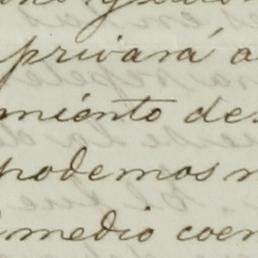 privará a
miento des
podemos n
medio coer